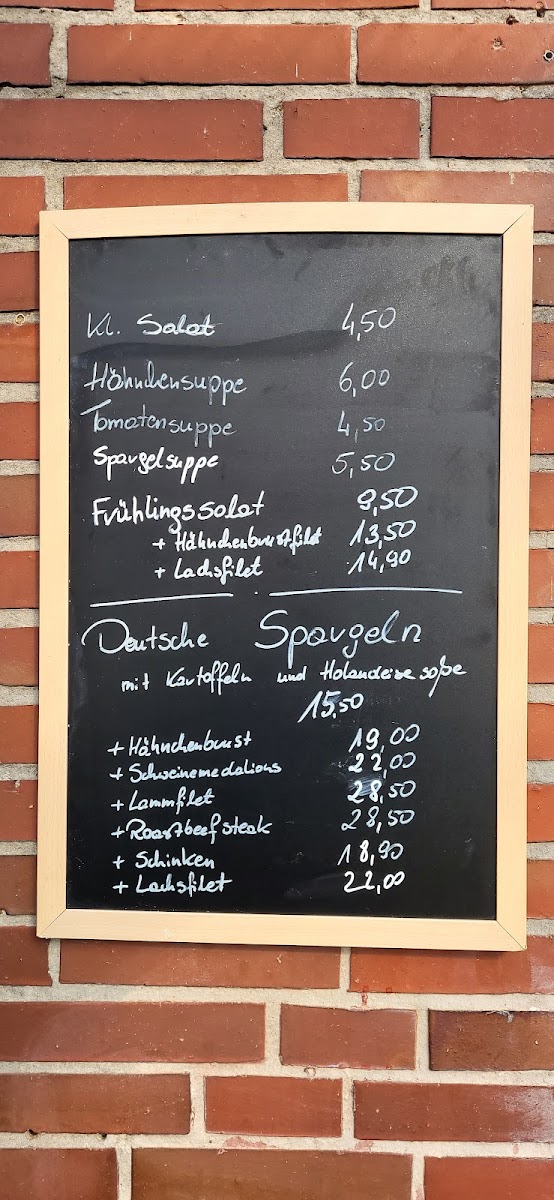 Kl. Salat 4,50
Hähnchensuppe 6,00
Tomatensuppe 4,50
Spargelsuppe 5,50
Frühlingssalat 9,50
+ Hähnchenbrustfilet 13,50
+ Lachsfilet 14,90
Deutsche Spargeln
mit Kartoffeln und Holandeise soße
15,50
+ Hähnchenbrust 19,00
+ Schweinemedalions 22,00
+ Lammfilet 28,50
+ Roastbeef steak 28,50
+ Schinken 18,90
+ Lachsfilet 22,00